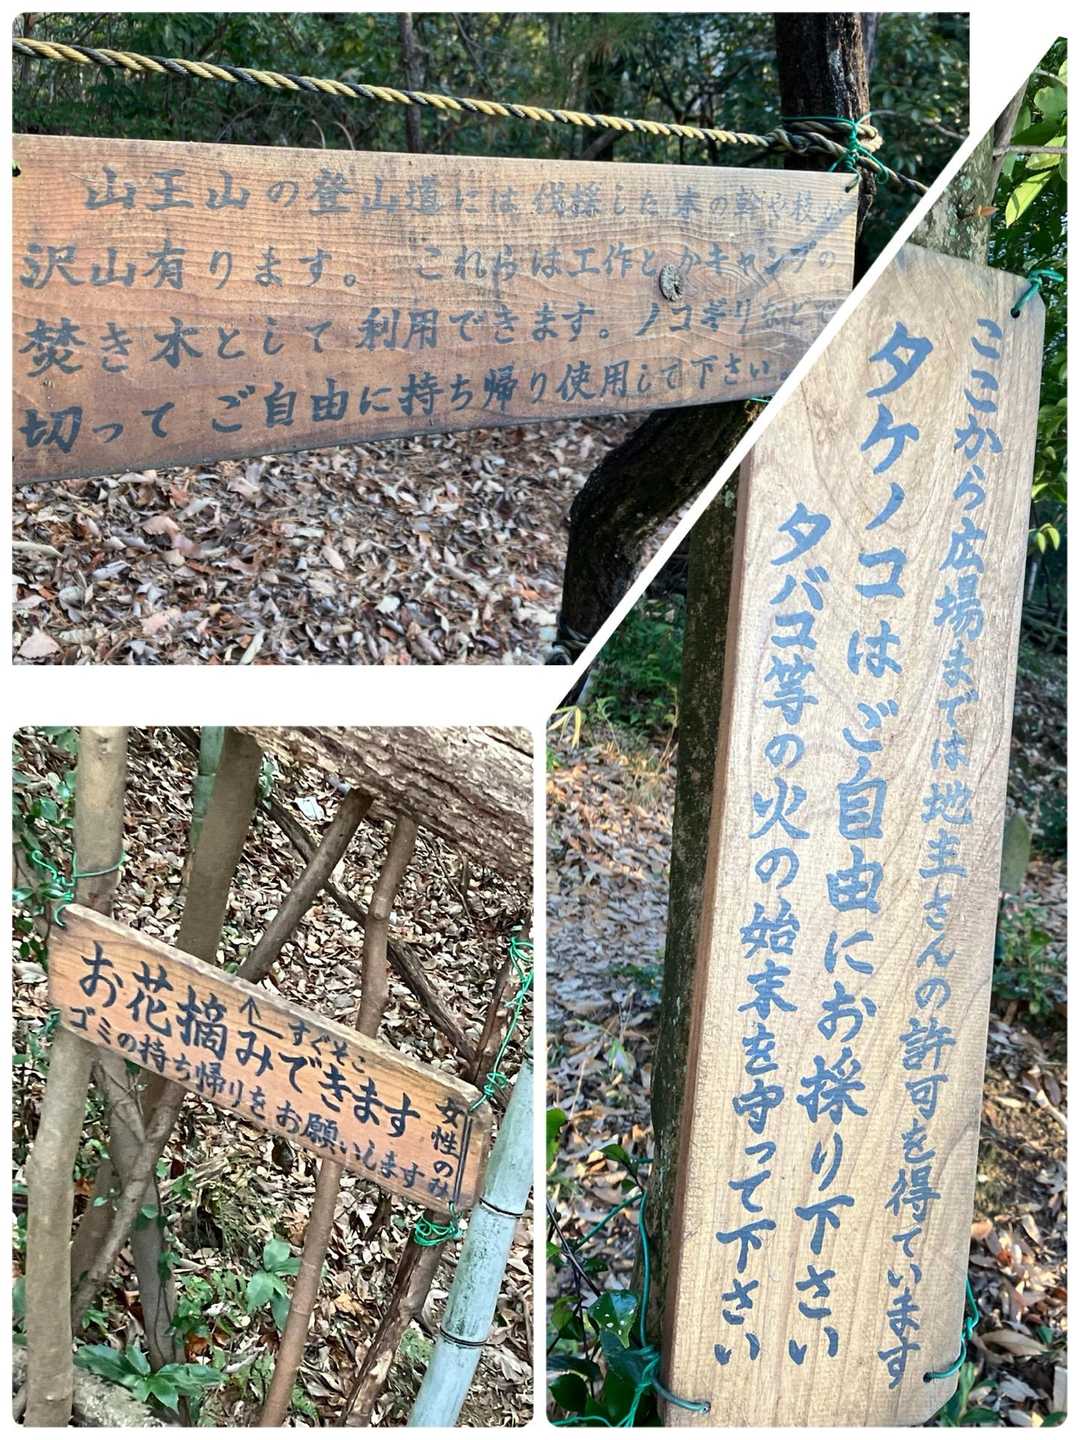 山王山の登山道には伐採した木の幹や枝が
沢山有ります。これらは工作とかキャンプの
焚き木として利用できます。ノコギリなどで
切ってご自由に持ち帰り使用して下さい。
ここから広場までは地主さんの許可を得ています
タケノコはご自由にお採り下さい
タバコ等の火の始末を守って下さい
↑すぐそこ
お花摘みできます
ゴミの持ち帰りをお願いします
女性のみ